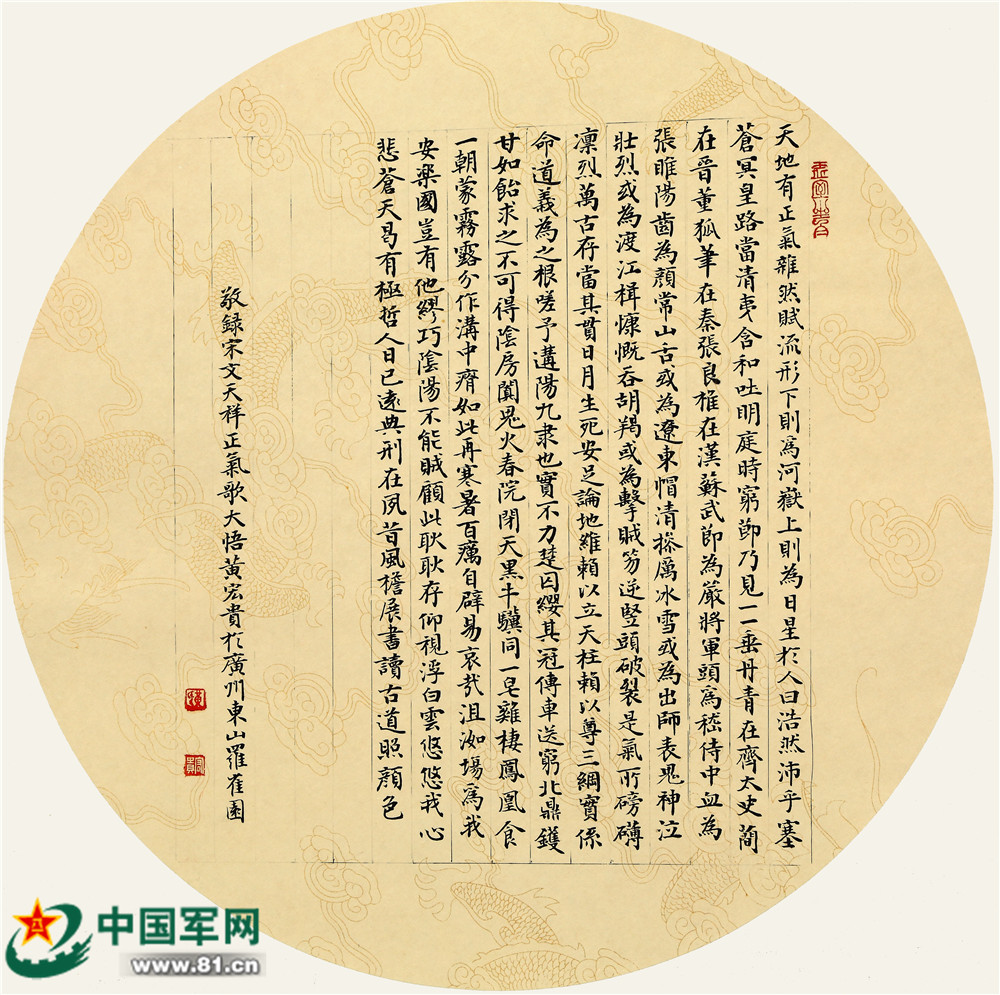 天地有正氣雜然賦流形下則爲河嶽上則為日星於人曰浩然沛乎塞
蒼冥皇路當清夷含和吐明庭時窮節乃見一一垂丹青在齊太史簡
在晉董狐筆在秦張良椎在漢蘇武節為嚴將軍頭爲嵇侍中血為
張睢陽齒為顏常山舌或為遼東帽清操厲冰雪或為出師表鬼神泣
壯烈或為渡江楫慷慨吞胡羯或為擊賊笏逆豎頭破裂是氣所磅礴
凛烈萬古存當其貫日月生死安足論地維賴以立天柱賴以尊三綱實係
命道義為之根嗟予遘陽九隶也實不力楚囚纓其冠傳車送窮北鼎鑊
甘如飴求之不可得陰房闃鬼火春院閉天黑牛驥同一皂雞棲鳳凰食
一朝蒙霧露分作溝中瘠如此再寒暑百癘自辟易哀哉沮洳場爲我
安樂國豈有他繆巧陰陽不能賊顧此耿耿存仰視浮白雲悠悠我心
悲蒼天曷有極哲人日已遠典刑在夙昔風檐展書讀古道照顏色
敬録宋文天祥正氣歌大悟黄宏貴於廣州東山羅崔園
中国军网
www.81.cn